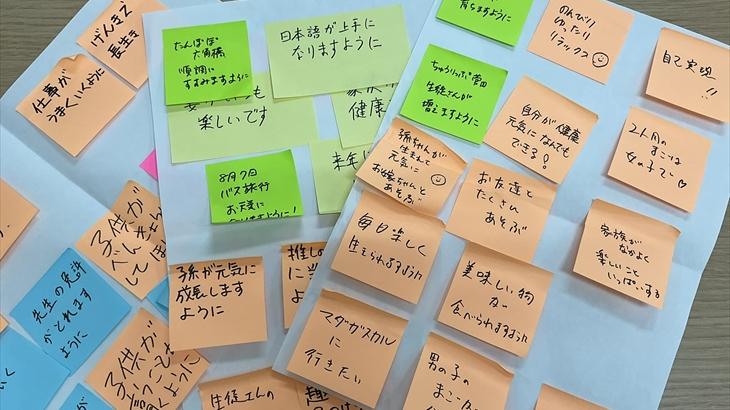 げんきで
長生き
仕事が
うまくいくように
たんぽぽ
六角橋
順調に
すすみますように
日本語が上手に
なりますように
楽しいです
健康
8月7日
バス旅行
お天気に
なりますように!
来年
育ちますように
ちゅうりっぷ菅田
生徒さんが
増えますように
のんびり
ゆったり
リラックス
自己実現
!!
自分が健康
元気になんでも
できる!
2人目の
まごは
女の子で
孫ちゃんが
生まれて
元気に
お嫁ちゃんと
あそぶ
お友達と
たくさん
あそぶ
家族が
なかよく
楽しいこと
いっぱいする
毎日楽しく
生きられますように
美味しい物
が
食べられますように
マダガスカル
に
行きたい
男の子の
孫が元気に
成長します
ように
推しの
に
先生の免許
がとれます
ように
子供が
べんきょう
して
子供が
ように
生徒さんの